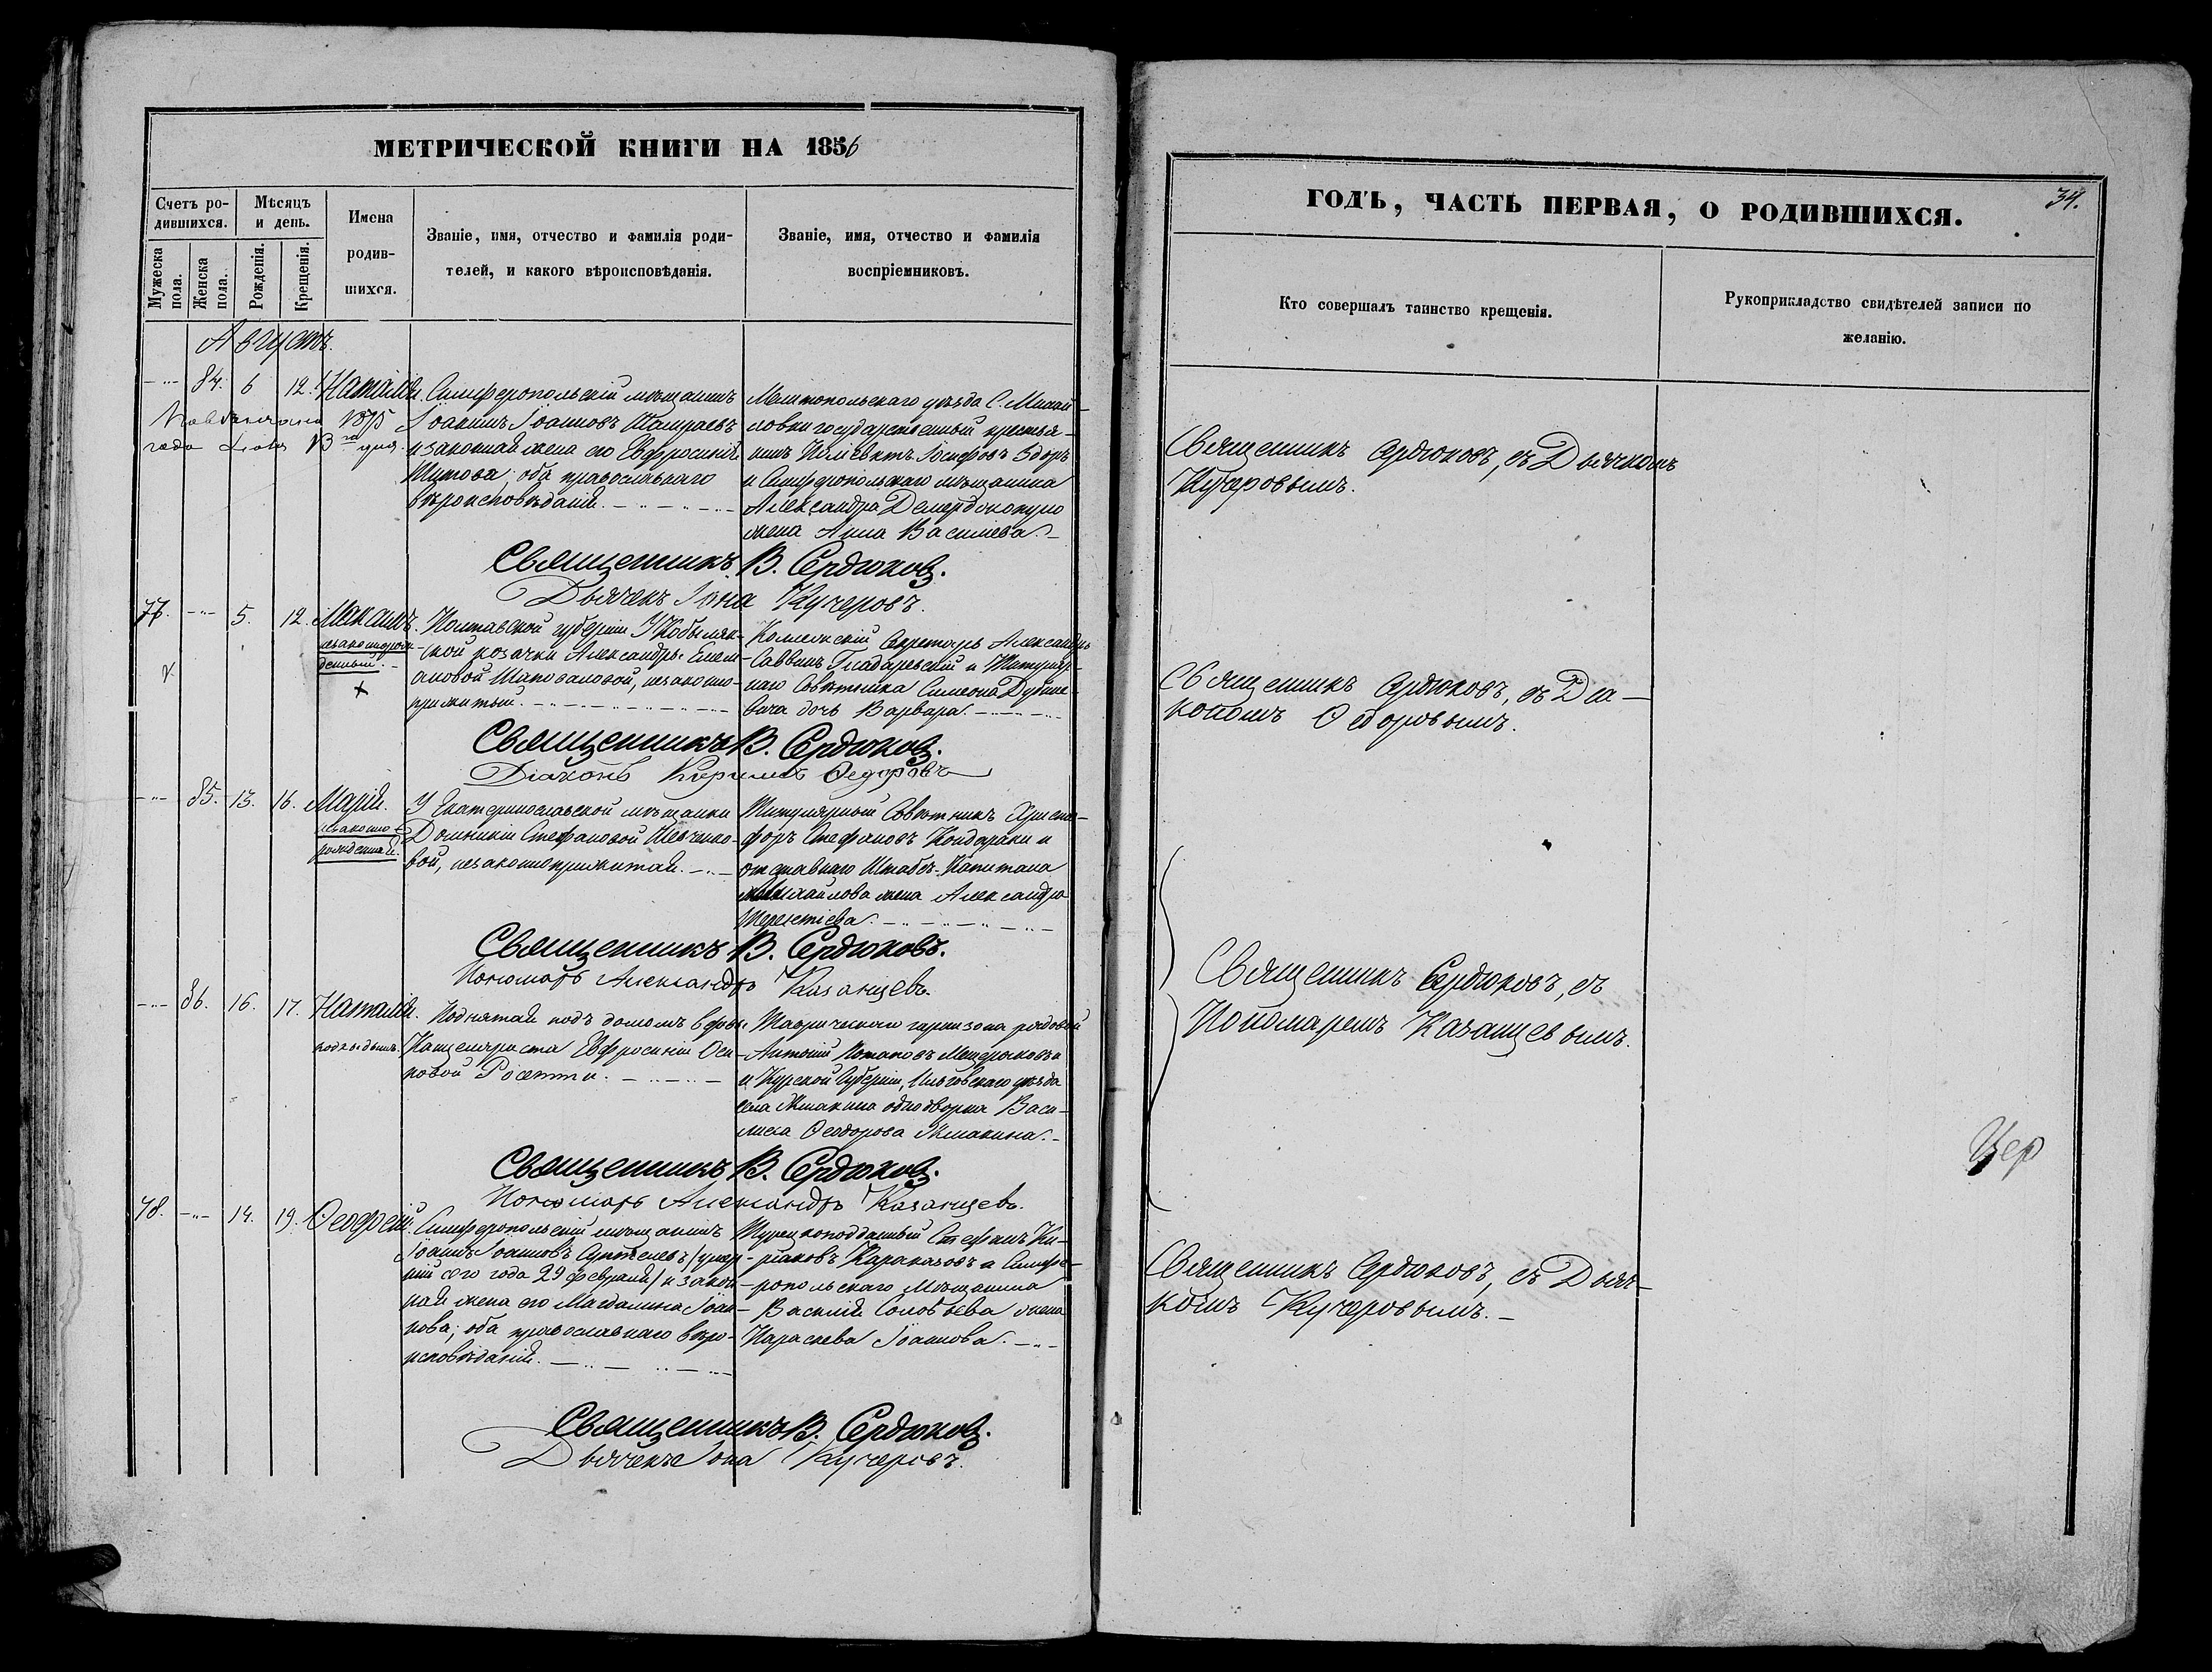 МЕТРИЧЕСКОЙ КНИГИ НА 1856
Счетъ родившихся.
Мѣсяцъ и день.
Имена родившихся.
Званіе, имя, отчество и фамилія родителей, и какого вѣроисповѣданія.
Званіе, имя, отчество и фамилія воспріемниковъ.
Мужеска пола.
Женска пола.
Рожденія.
Крещенія.
Августъ.
84. 6 12. Наталія.
1875
года дня
Симферопольскій мѣщанинъ
Іоаннъ Іоанновъ
и законная жена его Евфросинія
Титова; оба православнаго
вѣроисповѣданія.
Мелитопольскаго уѣзда С. Михай-
ловки государственный крестья-
нинъ Іосифовъ
и Симферопольскаго мѣщанина
Александра
жена Анна Васильева.
Священникъ В. Сердюковъ.
Дьячекъ Іона Кучеровъ.
77. 5. 12. Максимъ.
незаконнорож-
денный.
Полтавской губерніи У Кобыляк-
ской козачки Александры Емели-
ановой Шаповаловой, незаконно-
прижитый.
Коллежскій Секретарь Александръ
Саввинъ и Титуляр-
наго Совѣтника Симеона
дочь Варвара.
Священникъ В. Сердюковъ.
Діаконъ Кириллъ Ѳедоровъ
85. 13. 16. Марія.
незаконно-
рожденная.
У Екатеринославской мѣщанки
Домникіи Стефановой Шевченко-
вой, незаконноприжитая.
Титулярный Совѣтникъ Христо-
форъ Стефановъ Кондараки и
отставнаго Штабсъ-Капитана
Михайлова жена Александра
Терентіева.
Священникъ В. Сердюковъ.
Пономарь Александръ Казанцевъ.
86. 16. 17. Наталія.
подкидышъ.
Поднятая подъ домомъ вдовы
Канцеляриста Евфросиніи Оси-
повой
Таврическаго гарнизона рядовой
Антоній Потаповъ Мещеряковъ
и Курской Губерніи, Льговскаго уѣзда
села однодворка Васи-
лиса Ѳеодорова
Священникъ В. Сердюковъ.
Пономарь Александръ Казанцевъ.
78. 14. 19. Ѳеофанъ.
Симферопольскій мѣщанинъ
Іоаннъ Іоанновъ
сего года 29 февраля) и закон-
ная жена его Магдалина Іоан-
нова; оба православнаго вѣро-
исповѣданія.
Турецкоподданный Стефанъ Ки-
ріаковъ и Симфе-
ропольскаго Мѣщанина
Василія Соловьева жена
Параскева Іоаннова.
Священникъ В. Сердюковъ.
Дьячекъ Іона Кучеровъ.
ГОДЪ, ЧАСТЬ ПЕРВАЯ, О РОДИВШИХСЯ.
34.
Кто совершалъ таинство крещенія.
Рукоприкладство свидѣтелей записи по желанію.
Священникъ Сердюковъ, съ Дьячкомъ
Кучеровымъ.
Священникъ Сердюковъ, съ Діа-
кономъ Ѳедоровымъ.
Священникъ Сердюковъ, съ
Пономаремъ Казанцевымъ.
Цер
Священникъ Сердюковъ, съ Дьяч-
комъ Кучеровымъ.